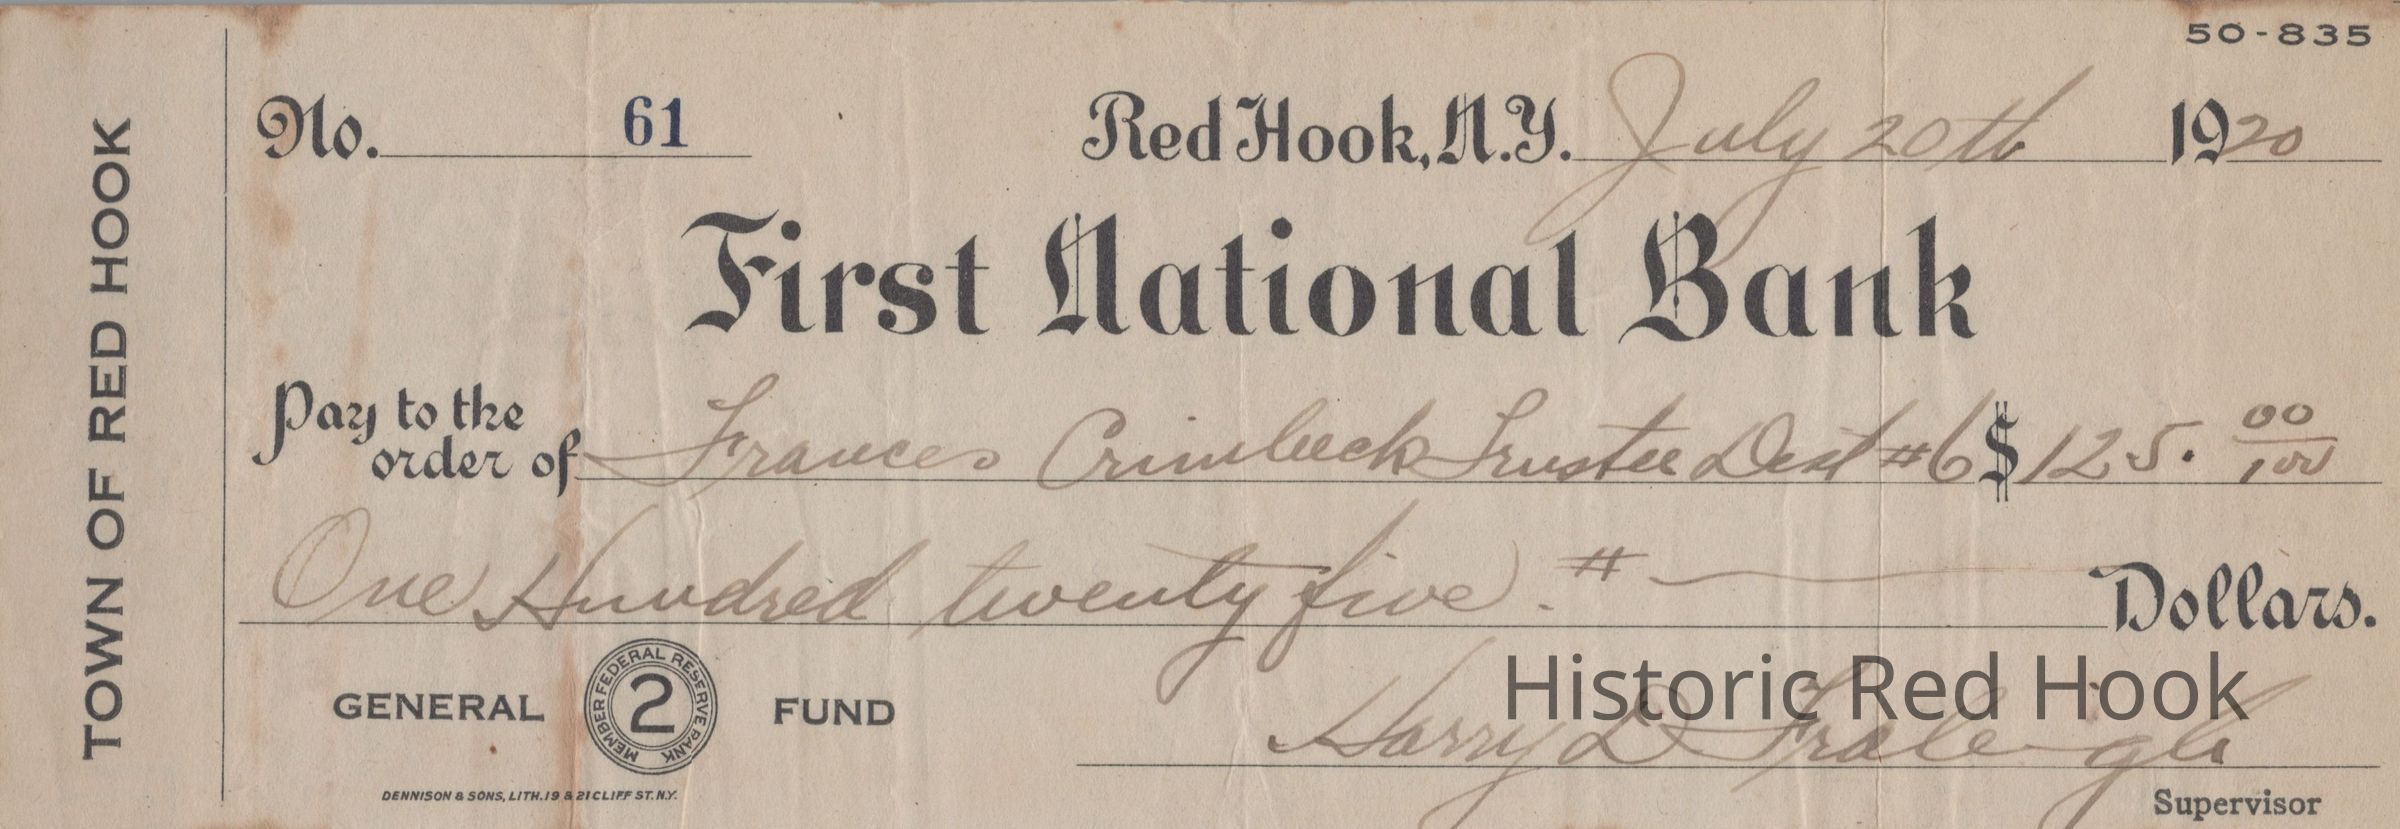 50-835
No. 61 Red Hook, N.Y. July 20th 1920
First National Bank
Pay to the
order of Frances Crimbeck Trustee Dist #6 $ 125. 00/100
One Hundred twenty five. # Dollars.
GENERAL 2 FUND
MEMBER FEDERAL RESERVE BANK
Historic Red Hook
Harry D Fraleigh
Supervisor
DENNISON & SONS, LITH. 19 & 21 CLIFF ST. N.Y.
TOWN OF RED HOOK